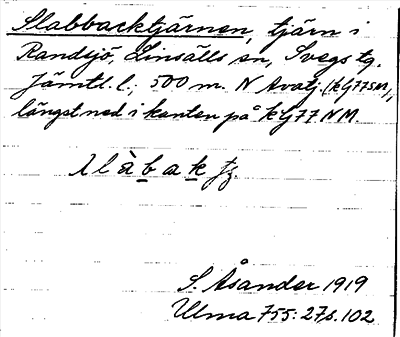 Slabbacktjärnen, tjärn i
Randsjö, Linsälls sn, Svegs tg.
Jämtl. l.; 500 m. N Avatj. (kG77SM,
längst ned i kanten på kG77NM.
S. Åsander 1919
Ulma 755: 27s. 102